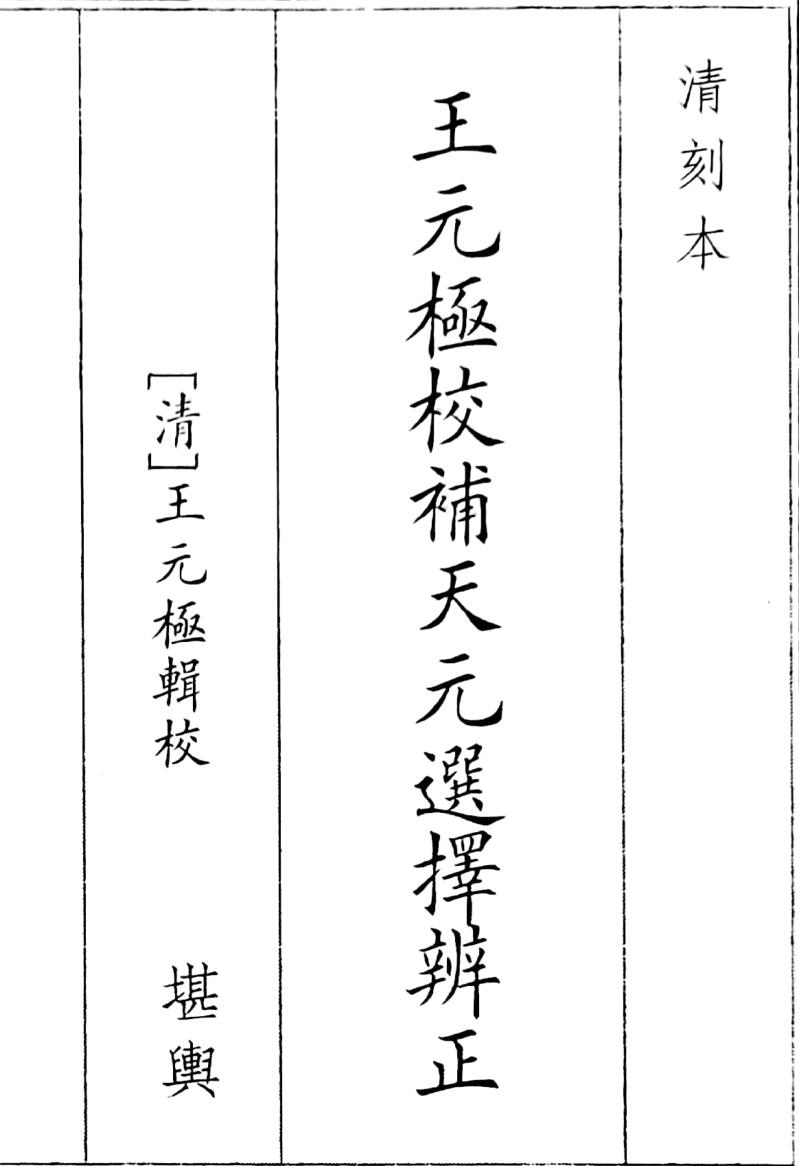 清刻本
王元極校補天元選擇辨正
[清]王元極輯校
堪輿